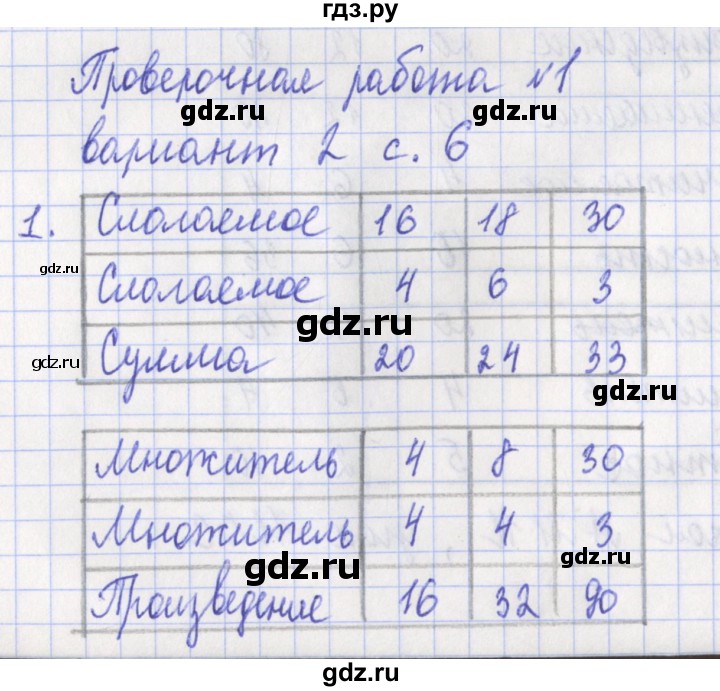 гдз.ру
Проверочная работа №1
gdz.ru
вариант 2 с. 6
gdz.ru
1. Слагаемое 16 18 30
gdz.ru
Слагаемое 4 6 3
gdz.ru
gdz.ru Сумма 20 24 33
gdz.ru
Множитель 4 8 30
Множитель 4 4 3
gdz.ru gdz.ru
Произведение 16 32 90
gdz.ru
gdz.ru